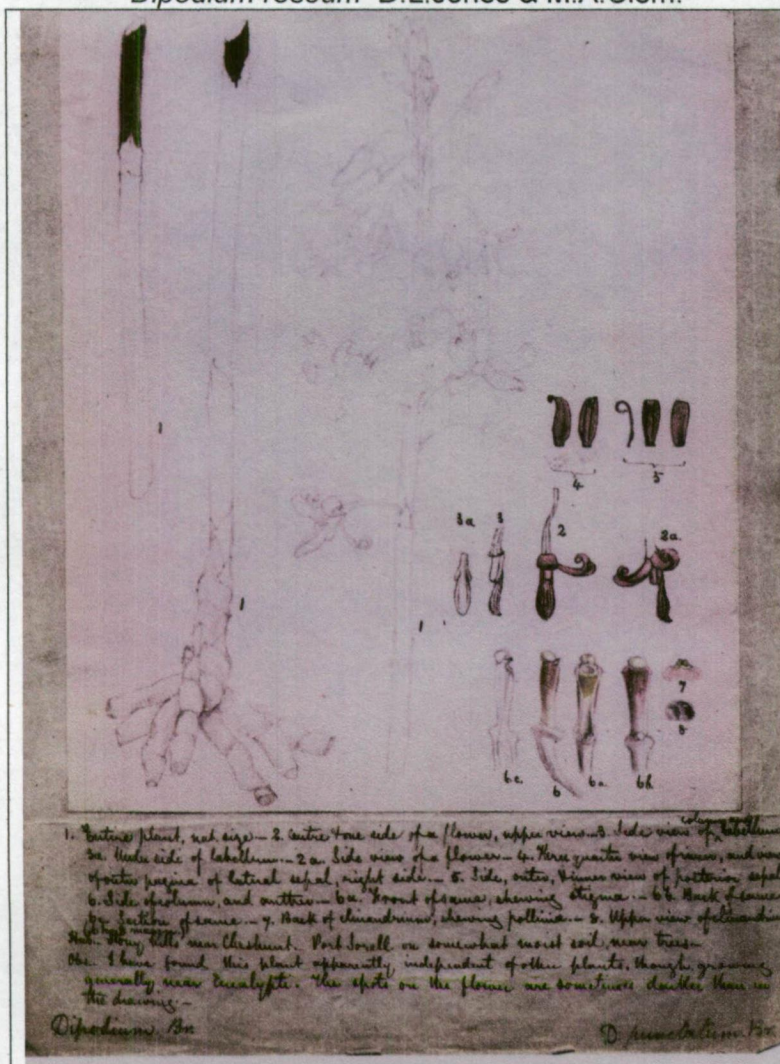 Dipodium roseum D.L.Jones & M.A.Clem.
1
4 5
3a 3 2 2a
1
1
7
8
6c. 6 6a. 6b
column and
1. Entire plant, nat size — 2. entire & one side of a flower, upper view — 3. Side view of labellum
3a. Under side of labellum. — 2a. Side view of a flower — 4. Three quarter view of inner, and
of outer pagina of lateral sepal, right side. — 5. Side, outer, & inner view of posterior sepal
6. Side of column, and anther — 6a. Front of same, shewing stigma. — 6b. Back of same
6c. Section of same. — 7. Back of clinandrium, shewing pollinia. — 8. Upper view of
Hab. Stony Hills near Cheshunt. Port Sorell on somewhat moist soil, near trees —
Obs. I have found this plant apparently independent of other plants, though growing
generally near Eucalypte. The spots on the flower are sometimes darker than in
the drawing. —
Dipodium. Br. D. punctatum. Br.